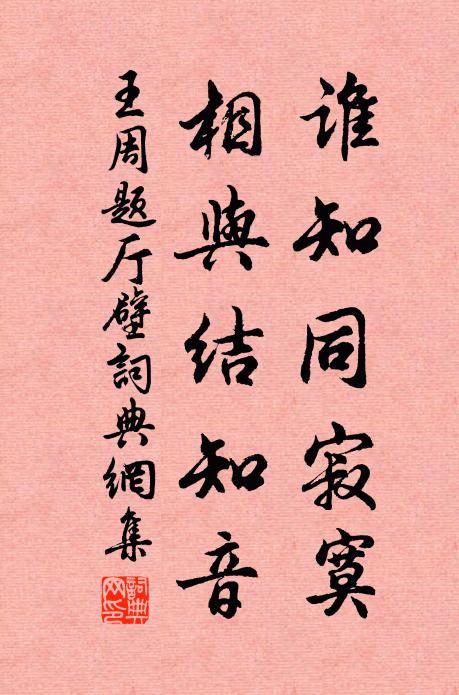 誰知同寂寞
相與结知音
王周题厅壁詞典網集
詞典网印